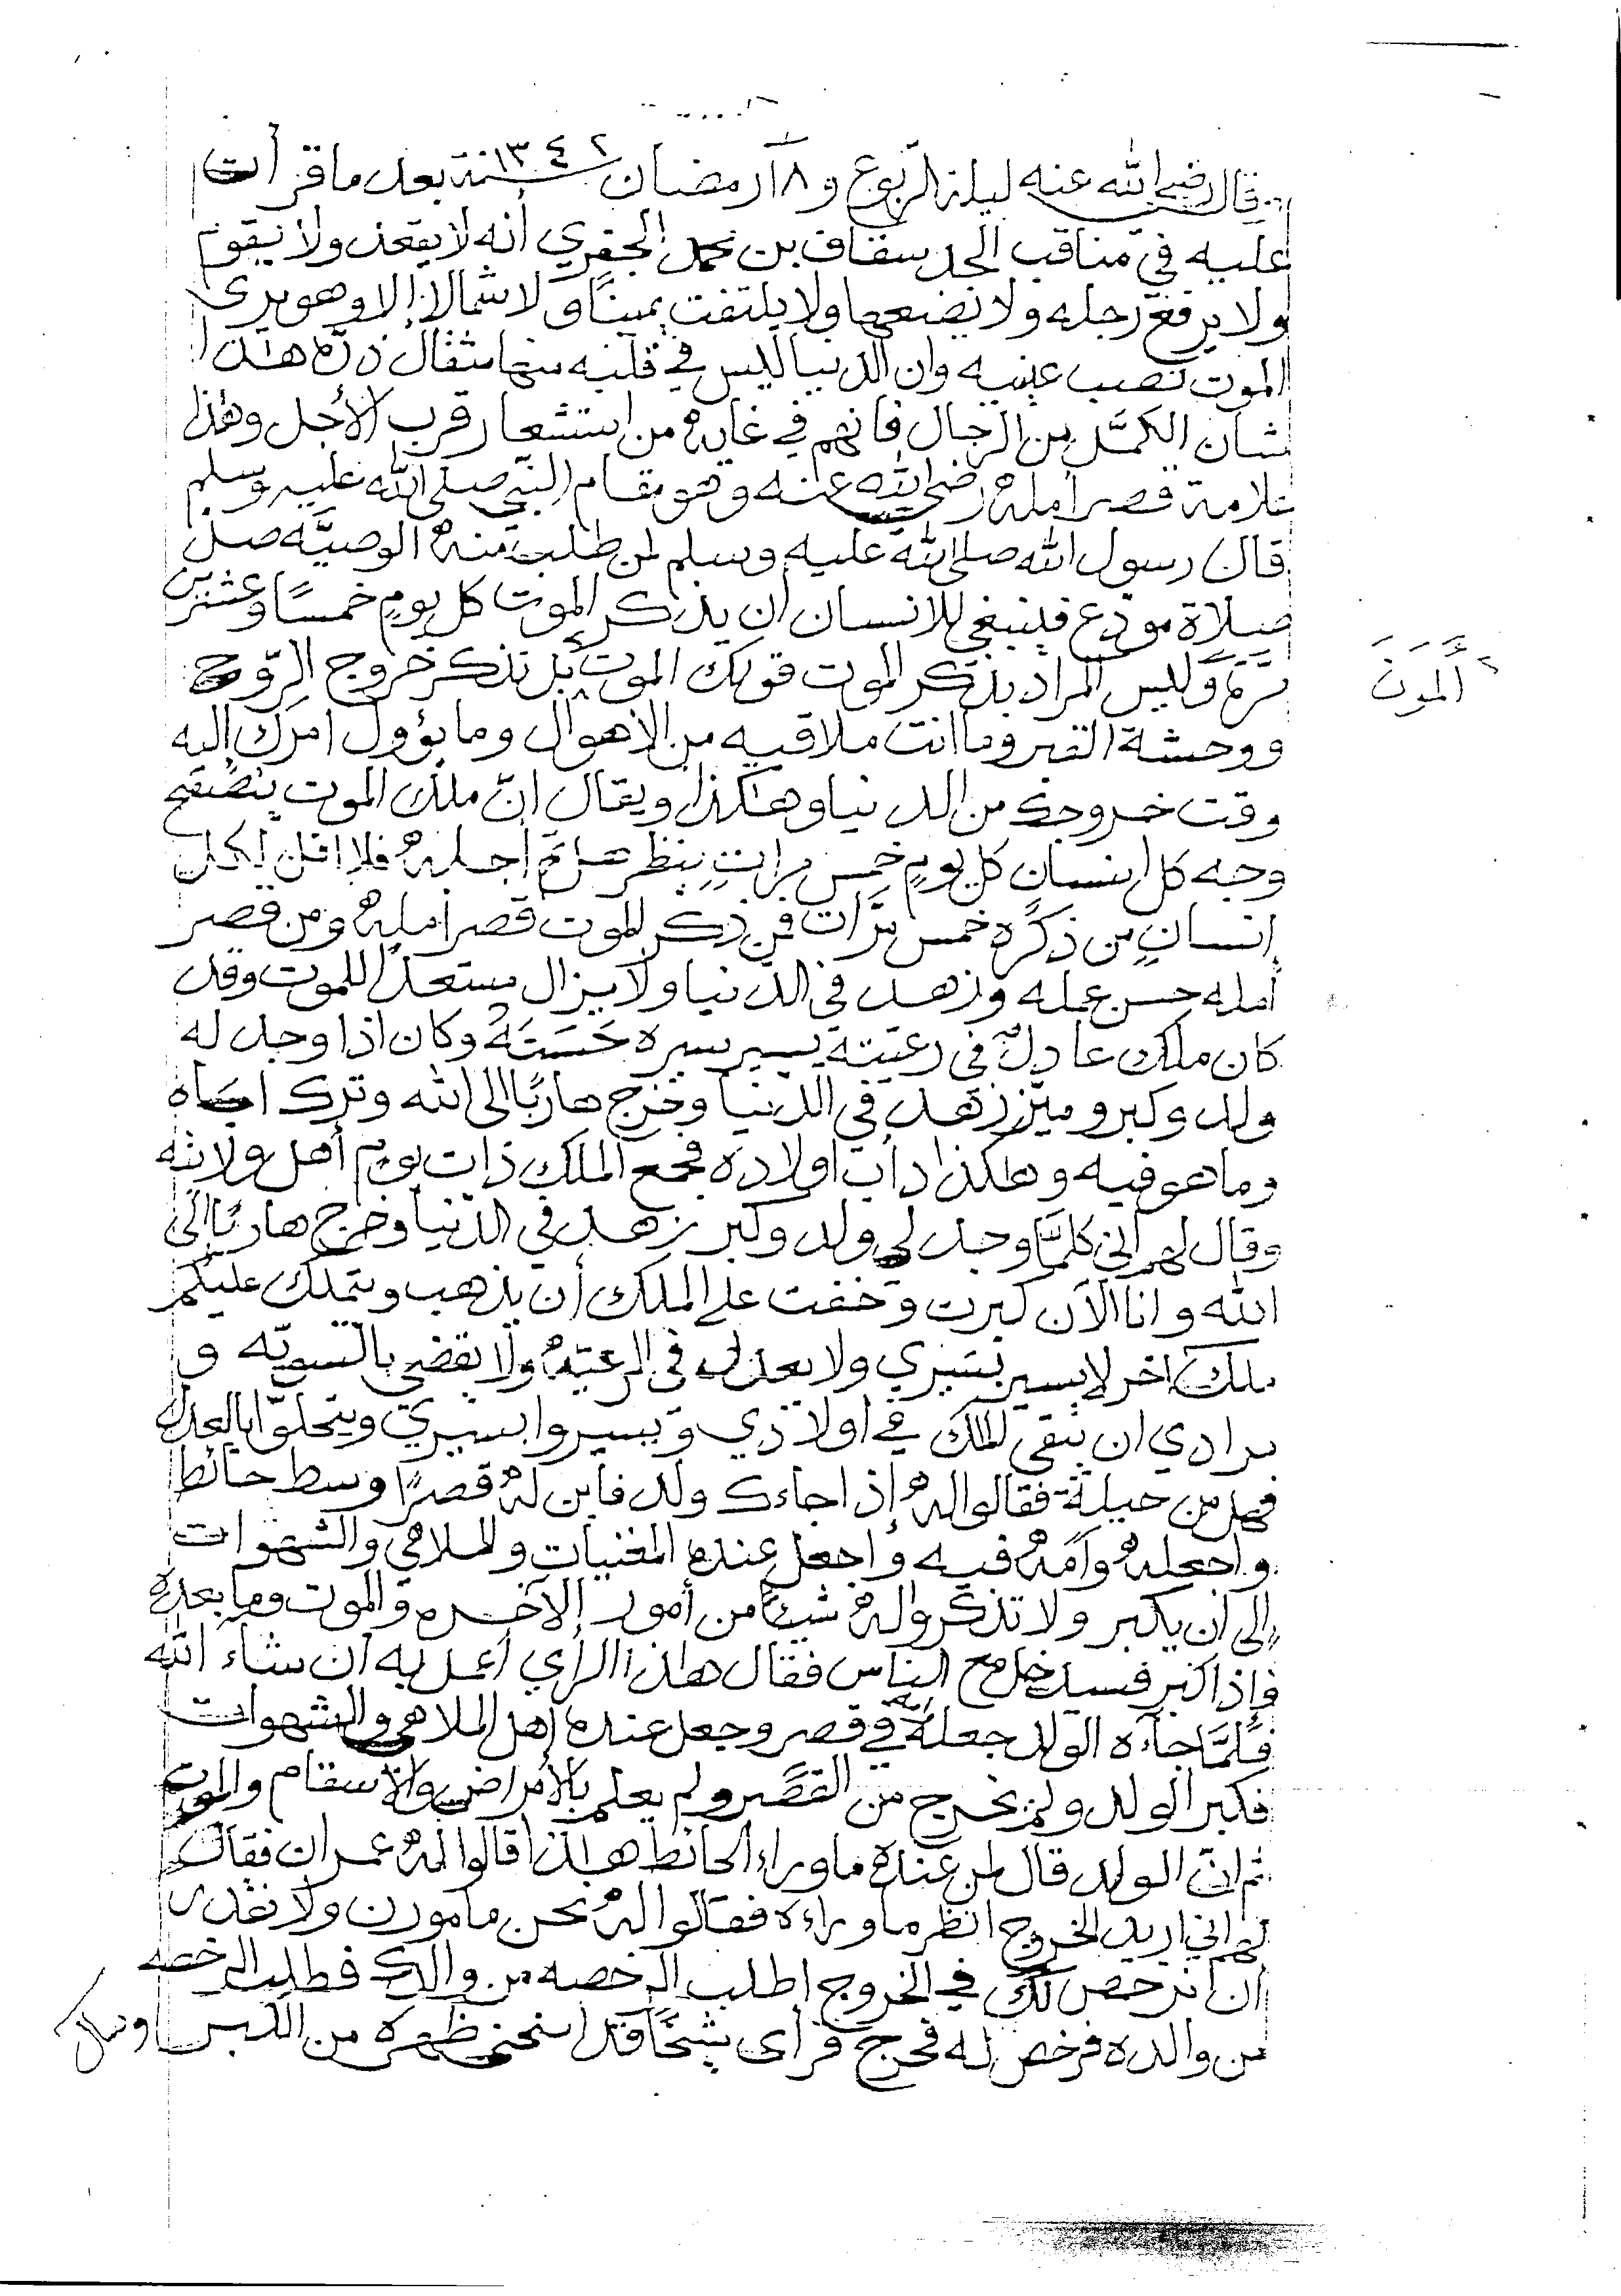 قال رضي الله عنه ليلة الربوع و ١٨ رمضان سنة ١٣٤٢ بعد ما قرأت
عليه في مناقب الجد سقاف بن محمد الجفري أنه لا يقعد ولا يقوم
ولا يرفع رجله ولا يضعها ولا يلتفت يمينًا ولا شمالا إلا وهو يرى
الموت نصب عينيه وان الدنيا ليس في قلبه منها مثقال ذرة هذا
شأن الكمَّل من الرجال فانهم في غاية من استشعار قرب الأجل وهذا
علامة قصر أمله رضي الله عنه وهو مقام النبي صلى الله عليه وسلم
قال رسول الله صلى الله عليه وسلم لمن طلب منه الوصيَّه صل
صلاة مودع فينبغي للانسان أن يذكر الموت كل يومٍ خمسًا وعشرين
مرَّة وليس المراد بذكر الموت قولك الموت بل تذكر خروج الرّوح
الموت
ووحشة القبر وما انت ملاقيه من الاهوال وما يؤول امرك إليه
وقت خروجك من الدنيا وهاكذا ويقال انّ ملك الموت يتصفح
وجه كل انسان كل يومٍ خمس مراتٍ ينظر هل تم أجله فلا اقل لكل
انسانٍ من ذكره خمس مرَّات فمن ذكر الموت قصر أمله ومن قصر
أمله حسن عمله وزهد في الدنيا ولا يزال مستعدًا للموت وقد
كان ملك عادلٌ في رعيته يسير سيره حَسَنَةً وكان اذا وجد له
ولد وكبر وميّز زهد في الدنيا وخرج هاربًا الى الله وترك اباه
وما هو فيه وهاكذا دأب اولاده فجمع الملك ذات يومٍ أهل ولايته
وقال لهم اني كلمَّا وجد لي ولد وكبر زهد في الدنيا وخرج هاربًا إلى
الله وانا الآن كبرت وخفت على الملك أن يذهب ويتملك عليكم
ملك اخر لا يسير بسَيري ولا يعدل في الرعيّة ولا يقضي بالسويّه و
مرادي ان يبقى الملك في اولادي ويسيروا بسيري ويتحلوّا بالعدل
فهل من حيلة فقالوا له إذا جاءك ولد فابن له قصرًا وسط حائط
واجعله وأمّه فيه واجعل عنده المغنيات والملاهي والشهوات
إلى ان يكبر ولا تذكروا له شيئًا من أمور الآخره والموت وما بعده
فإذا كبر فسيدخل مع الناس فقال هاذا الرأي أعمل به ان شاء الله
فلمَّا جاءه الولد جعله في قصر وجعل عنده أهل الملاهي والشهوات
فكبر الولد ولم يخرج من القصر ولم يعلم بالأمراض والأسقام والموت
ثم انّ الولد قال لمن عنده ما وراء الحائط هاذا قالوا له عمران فقال
لهم اني اريد الخروج انظر ما وراءه فقالوا له نحن مأمورن ولا نقدر
ان نرخص لك في الخروج اطلب الرخصه من والدك فطلب الرخصه
من والده فرخص له فخرج فرأى شيخًا قد انحنى ظهره من الكبر